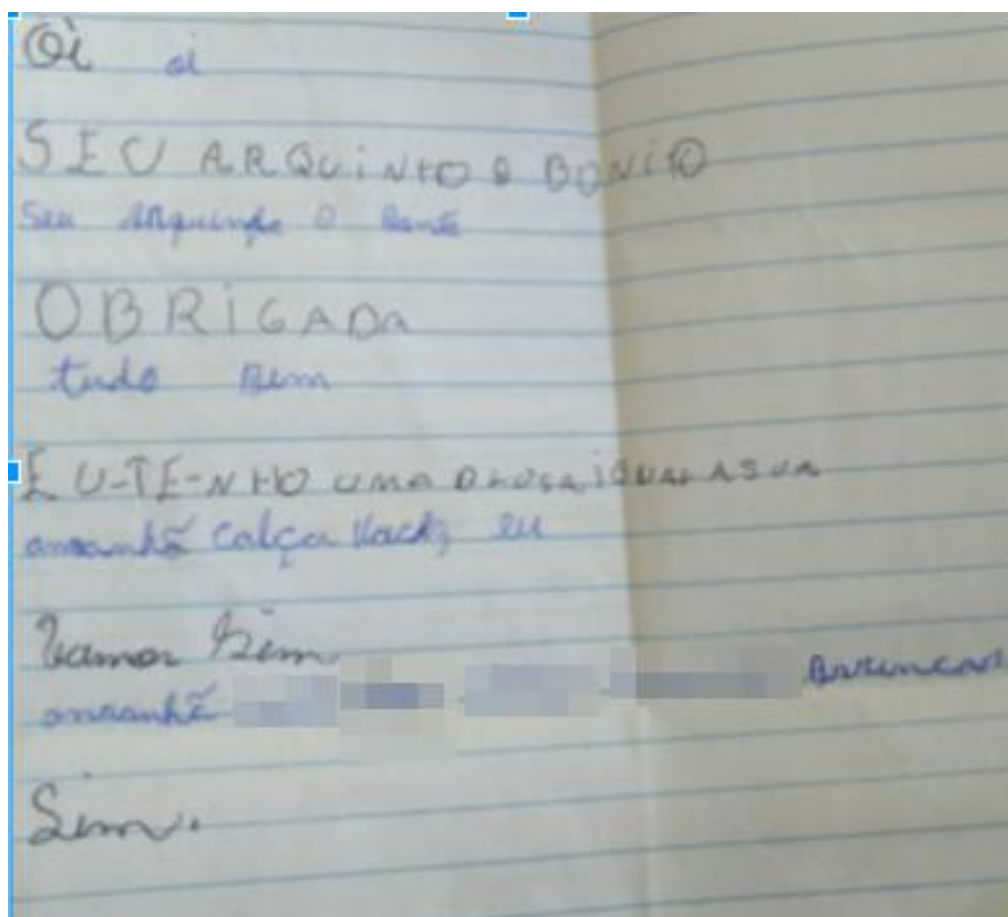 Oi oi
SEU ARQUiNHO e BONiTO
Seu arquinho e
OBRiGADA
tudo Bem
EU-TE-NHO UMA BLUSA iGUAL A SUA
amanhã calça eu
Vamos Sim
amanhã Brincar
Sim.